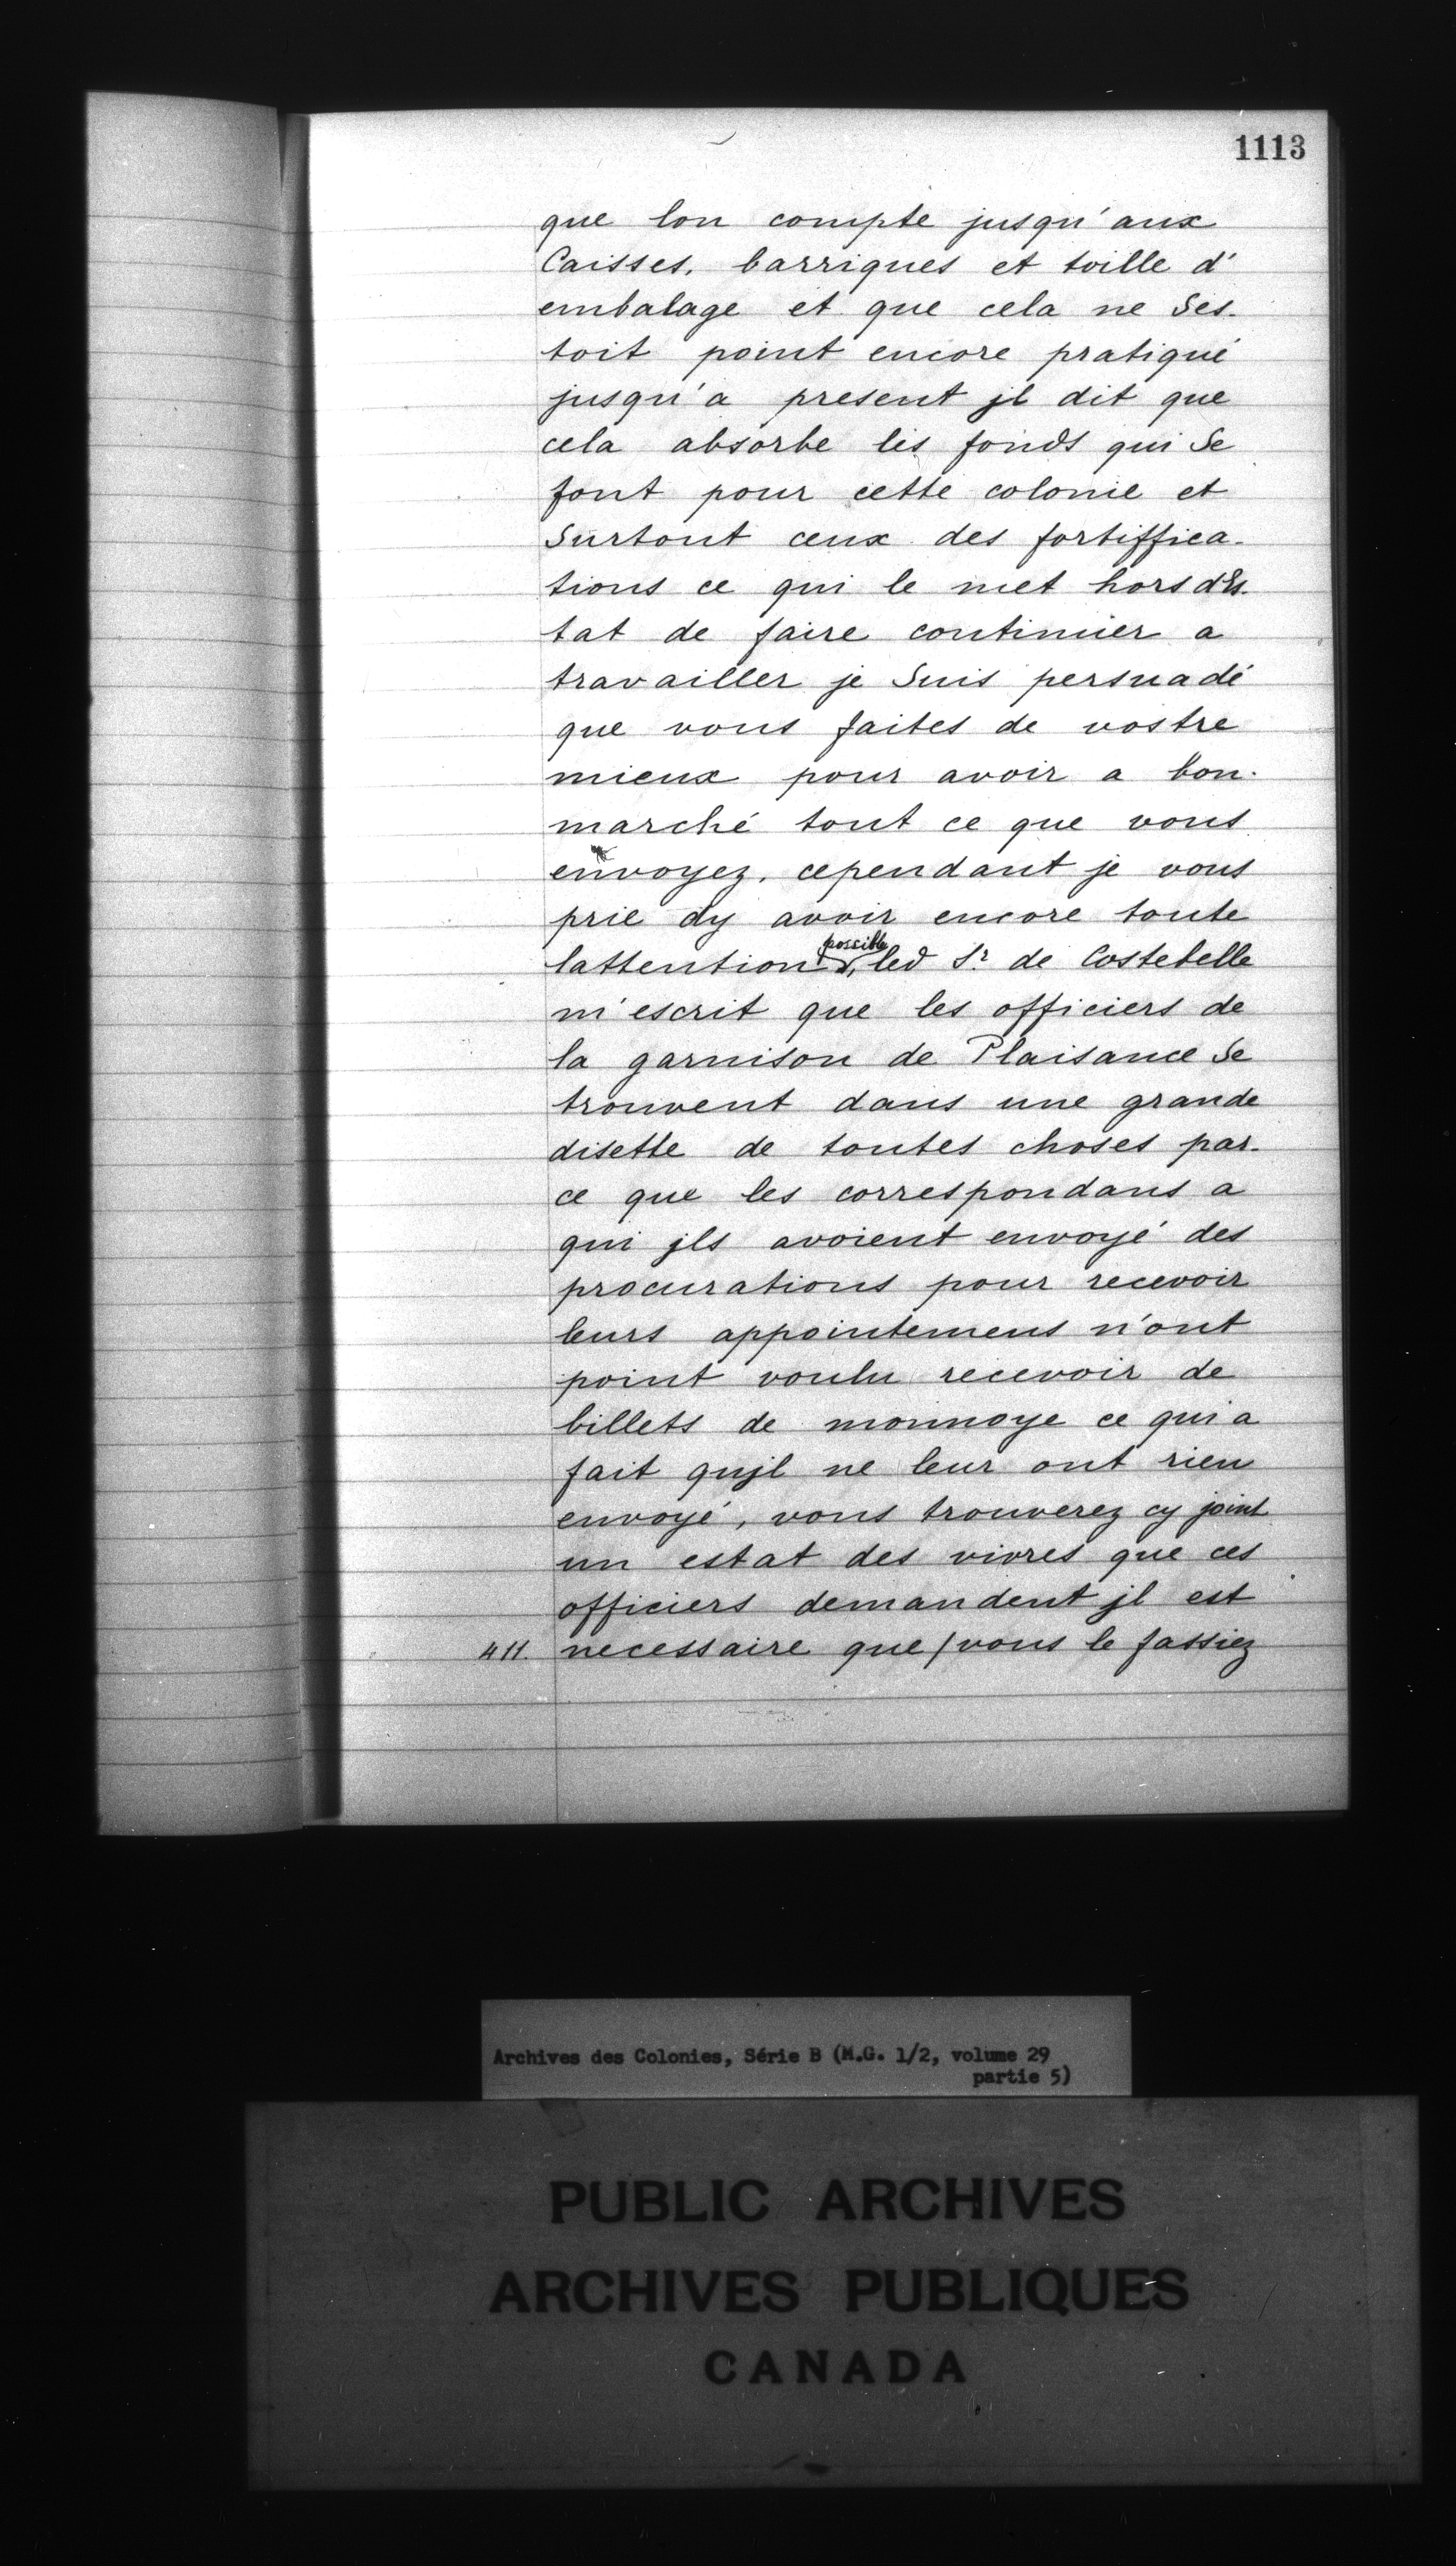 1113
que lon compte jusqu'aux
Caisses, barriques et toille d'
embalage et que cela ne Ses-
toit point encore pratiqué
jusqu'a present jl dit que
cela absorbe les fonds qui Se
font pour cette colonie et
Surtout ceux des fortiffica-
tions ce qui le met hors dEs-
tat de faire continuer a
travailler je Suis persuadé
que vous faites de vostre
mieux pour avoir a bon-
marché tout ce que vous
envoyez, cependant je vous
prie dy avoir encore toute
lattention possible, led Sr. de Costebelle
m'escrit que les officiers de
la garnison de Plaisance Se
trouvent dans une grande
disette de toutes choses par-
ce que les correspondans a
qui jls avoient envoyé des
procurations pour recevoir
leurs appointemens n'ont
point voulu recevoir de
billets de monnoye ce qui a
fait qujl ne leur ont rien
envoyé, vous trouverez cy joint
un estat des vivres que ces
officiers demandent jl est
411. necessaire que/vous le fassiez
Archives des Colonies, Série B (M.G. 1/2, volume 29
partie 5)
PUBLIC ARCHIVES
ARCHIVES PUBLIQUES
CANADA